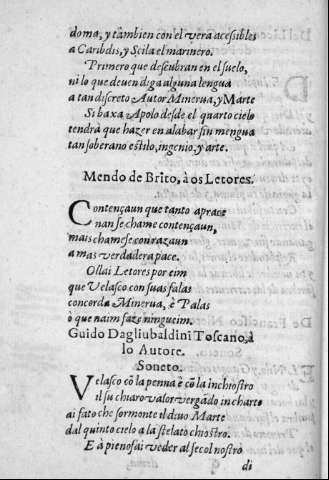 doma, y tâmbien con el vera acessibles
a Caribdis, y Scila el marinero.
Primero que descubran en el suelo,
ni lo que deuen diga alguna lengua
a tan discreto Autor Minerua, y Marte
Si baxa Apolo desde el quarto cielo
tendrá que hazer en alabar sin mengua
tan soberano estilo, ingenio, y arte.
Mendo de Brito, à os Letores.
Contençaun que tanto aprace
nan se chame contençaun,
mais chamese con razaun
a mas verdadera pace.
Ollai Letores por eim
que Velasco con suas falas
concorda Minerua, è Palas
ò que naim faze ningueim.
Guido Dagliubaldini Toscano, à
lo Autore.
Soneto.
Velasco cō la penna è cō la inchiostro
il su chiaro valor vergādo in charte
ai fato che sormonte il diuo Marte
dal quinto cielo a la stelato chiostro.
E à pieno fai veder al secol nostro
di